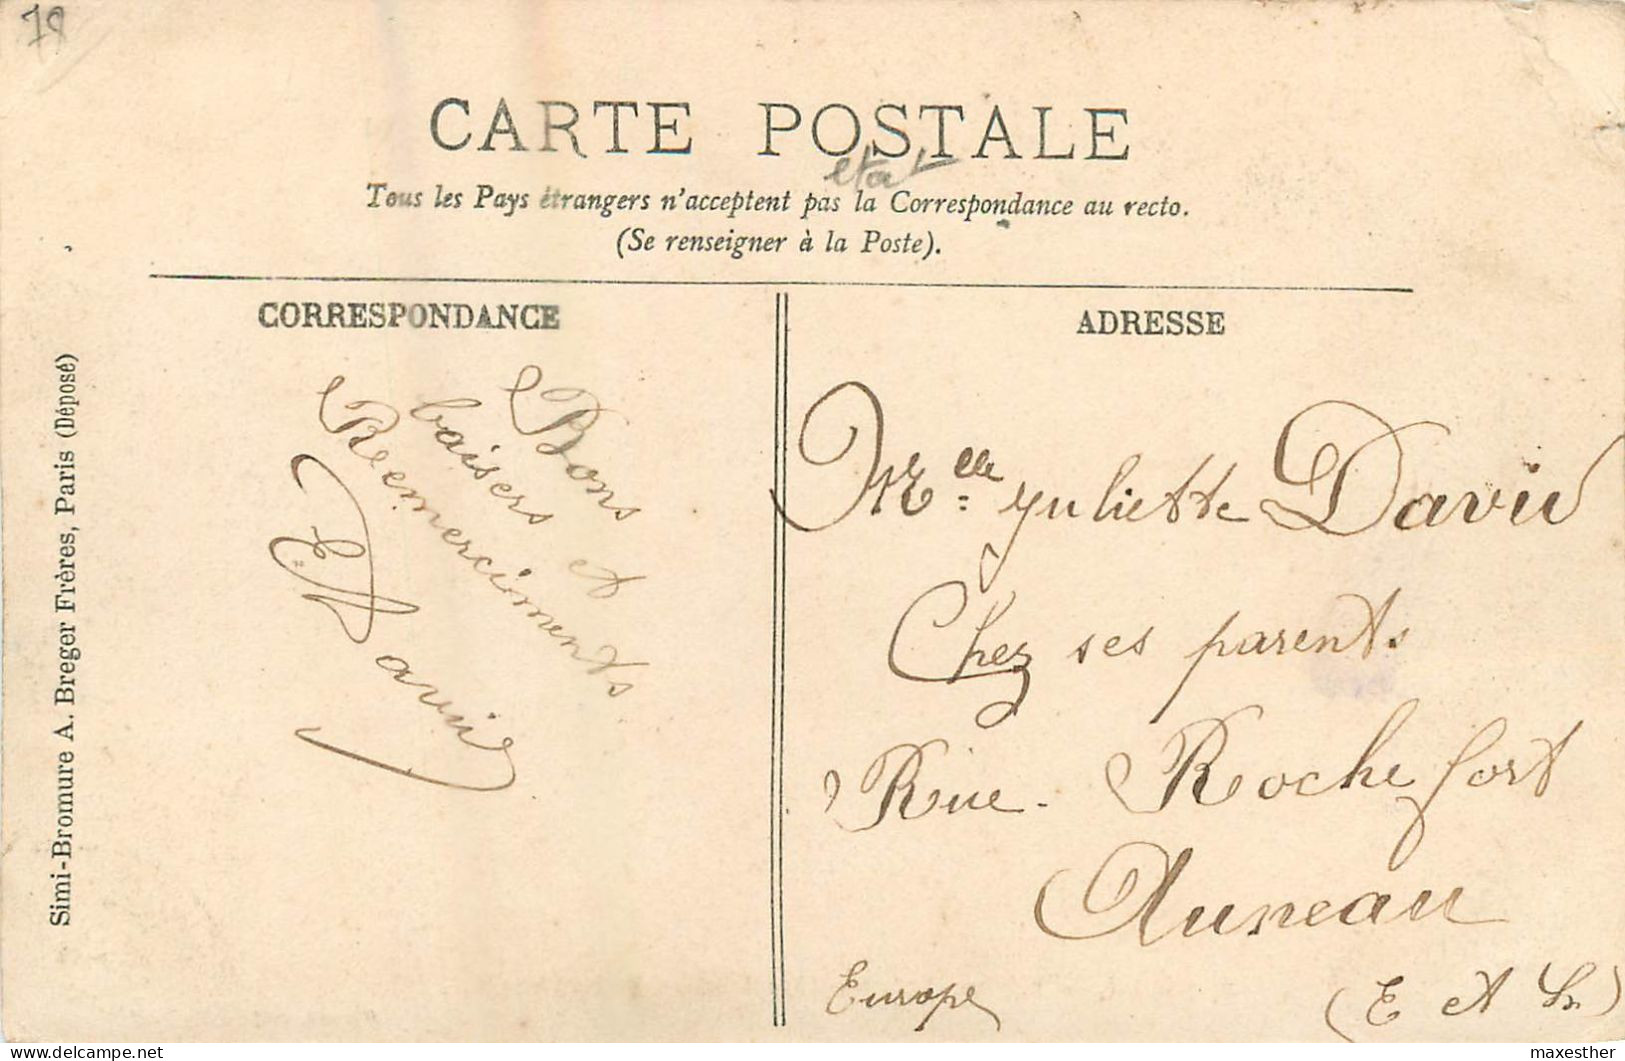 78
CARTE POSTALE
état
Tous les Pays étrangers n'acceptent pas la Correspondance au recto.
(Se renseigner à la Poste).
CORRESPONDANCE
Bons
baisers et
Remerciments
E. Davié
ADRESSE
Melle Juliette Davié
Chez ses parents
Rue. Rochefort
Auneau
Europe
(E et Lr)
Simi-Bromure A. Breger Frères, Paris (Déposé)
maxesther